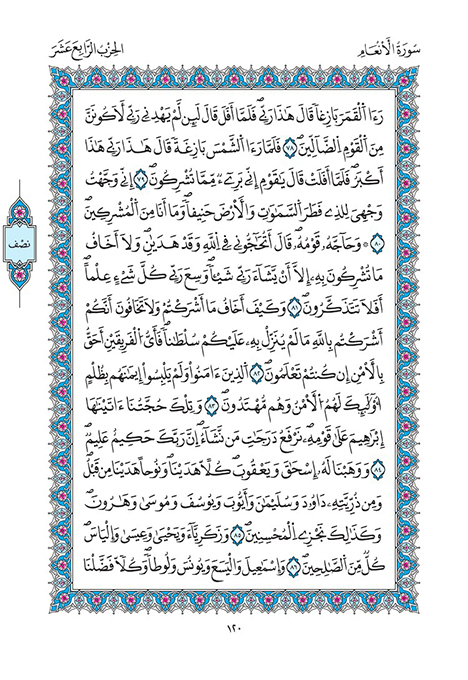 سُورَةُ الْأَنْعَامِ
الحِزْبُ الرَّابِعَ عَشَرَ
رَءَا اَلْقَمَرَ بَازِغاً قَالَ هَٰذَا رَبِّي فَلَمَّا أَفَلَ قَالَ لَئِن لَّمْ يَهْدِنِي رَبِّي لَأَكُونَنَّ
مِنَ اَلْقَوْمِ اِلضَّآلِّينَ ٧٨ فَلَمَّا رَءَا اَلشَّمْسَ بَازِغَةً قَالَ هَٰذَا رَبِّي هَٰذَا
أَكْبَرُ فَلَمَّا أَفَلَتْ قَالَ يَٰقَوْمِ إِنِّي بَرِےٓءٌ مِّمَّا تُشْرِكُونَ ٧٩ إِنِّي وَجَّهْتُ
وَجْهِيَ لِلذِي فَطَرَ اَلسَّمَٰوَٰتِ وَالْأَرْضَ حَنِيفاً وَمَا أَنَا مِنَ اَلْمُشْرِكِينَ
٨٠ وَحَاجَّهُۥ قَوْمُهُۥ قَالَ أَتُحَٰجُّونِي فِي اِللَّهِ وَقَدْ هَدَيٰنِ وَلَا أَخَافُ
مَا تُشْرِكُونَ بِهِۦ إِلَّا أَنْ يَّشَآءَ رَبِّي شَيْئاً وَسِعَ رَبِّي كُلَّ شَيْءٍ عِلْماً
أَفَلَا تَتَذَكَّرُونَ ٨١ وَكَيْفَ أَخَافُ مَا أَشْرَكْتُمْ وَلَا تَخَافُونَ أَنَّكُمْ
أَشْرَكْتُم بِاللَّهِ مَا لَمْ يُنَزِّلْ بِهِۦ عَلَيْكُمْ سُلْطَٰناً فَأَيُّ الْفَرِيقَيْنِ أَحَقُّ
بِالْأَمْنِ إِن كُنتُمْ تَعْلَمُونَ ٨٢ اَلذِينَ ءَامَنُوا وَلَمْ يَلْبِسُوا إِيمَٰنَهُم بِظُلْمٍ
أُوْلَٰٓئِكَ لَهُمُ الْأَمْنُ وَهُم مُّهْتَدُونَ ٨٣ وَتِلْكَ حُجَّتُنَا ءَاتَيْنَٰهَا
إِبْرَٰهِيمَ عَلَىٰ قَوْمِهِۦ نَرْفَعُ دَرَجَٰتِ مَن نَّشَآءُ إِنَّ رَبَّكَ حَكِيمٌ عَلِيمٌ
٨٤ وَوَهَبْنَا لَهُۥ إِسْحَٰقَ وَيَعْقُوبَ كُلّاً هَدَيْنَا وَنُوحاً هَدَيْنَا مِن قَبْلُ
وَمِن ذُرِّيَّتِهِۦ دَاوُۥدَ وَسُلَيْمَٰنَ وَأَيُّوبَ وَيُوسُفَ وَمُوسَىٰ وَهَٰرُونَ
وَكَذَٰلِكَ نَجْزِي اِلْمُحْسِنِينَ ٨٥ وَزَكَرِيَّآءَ وَيَحْيَىٰ وَعِيسَىٰ وَإِلْيَاسَ
كُلٌّ مِّنَ اَلصَّٰلِحِينَ ٨٦ وَإِسْمَٰعِيلَ وَالْيَسَعَ وَيُونُسَ وَلُوطاً وَكُلّاً فَضَّلْنَا
نصف
١٢٠